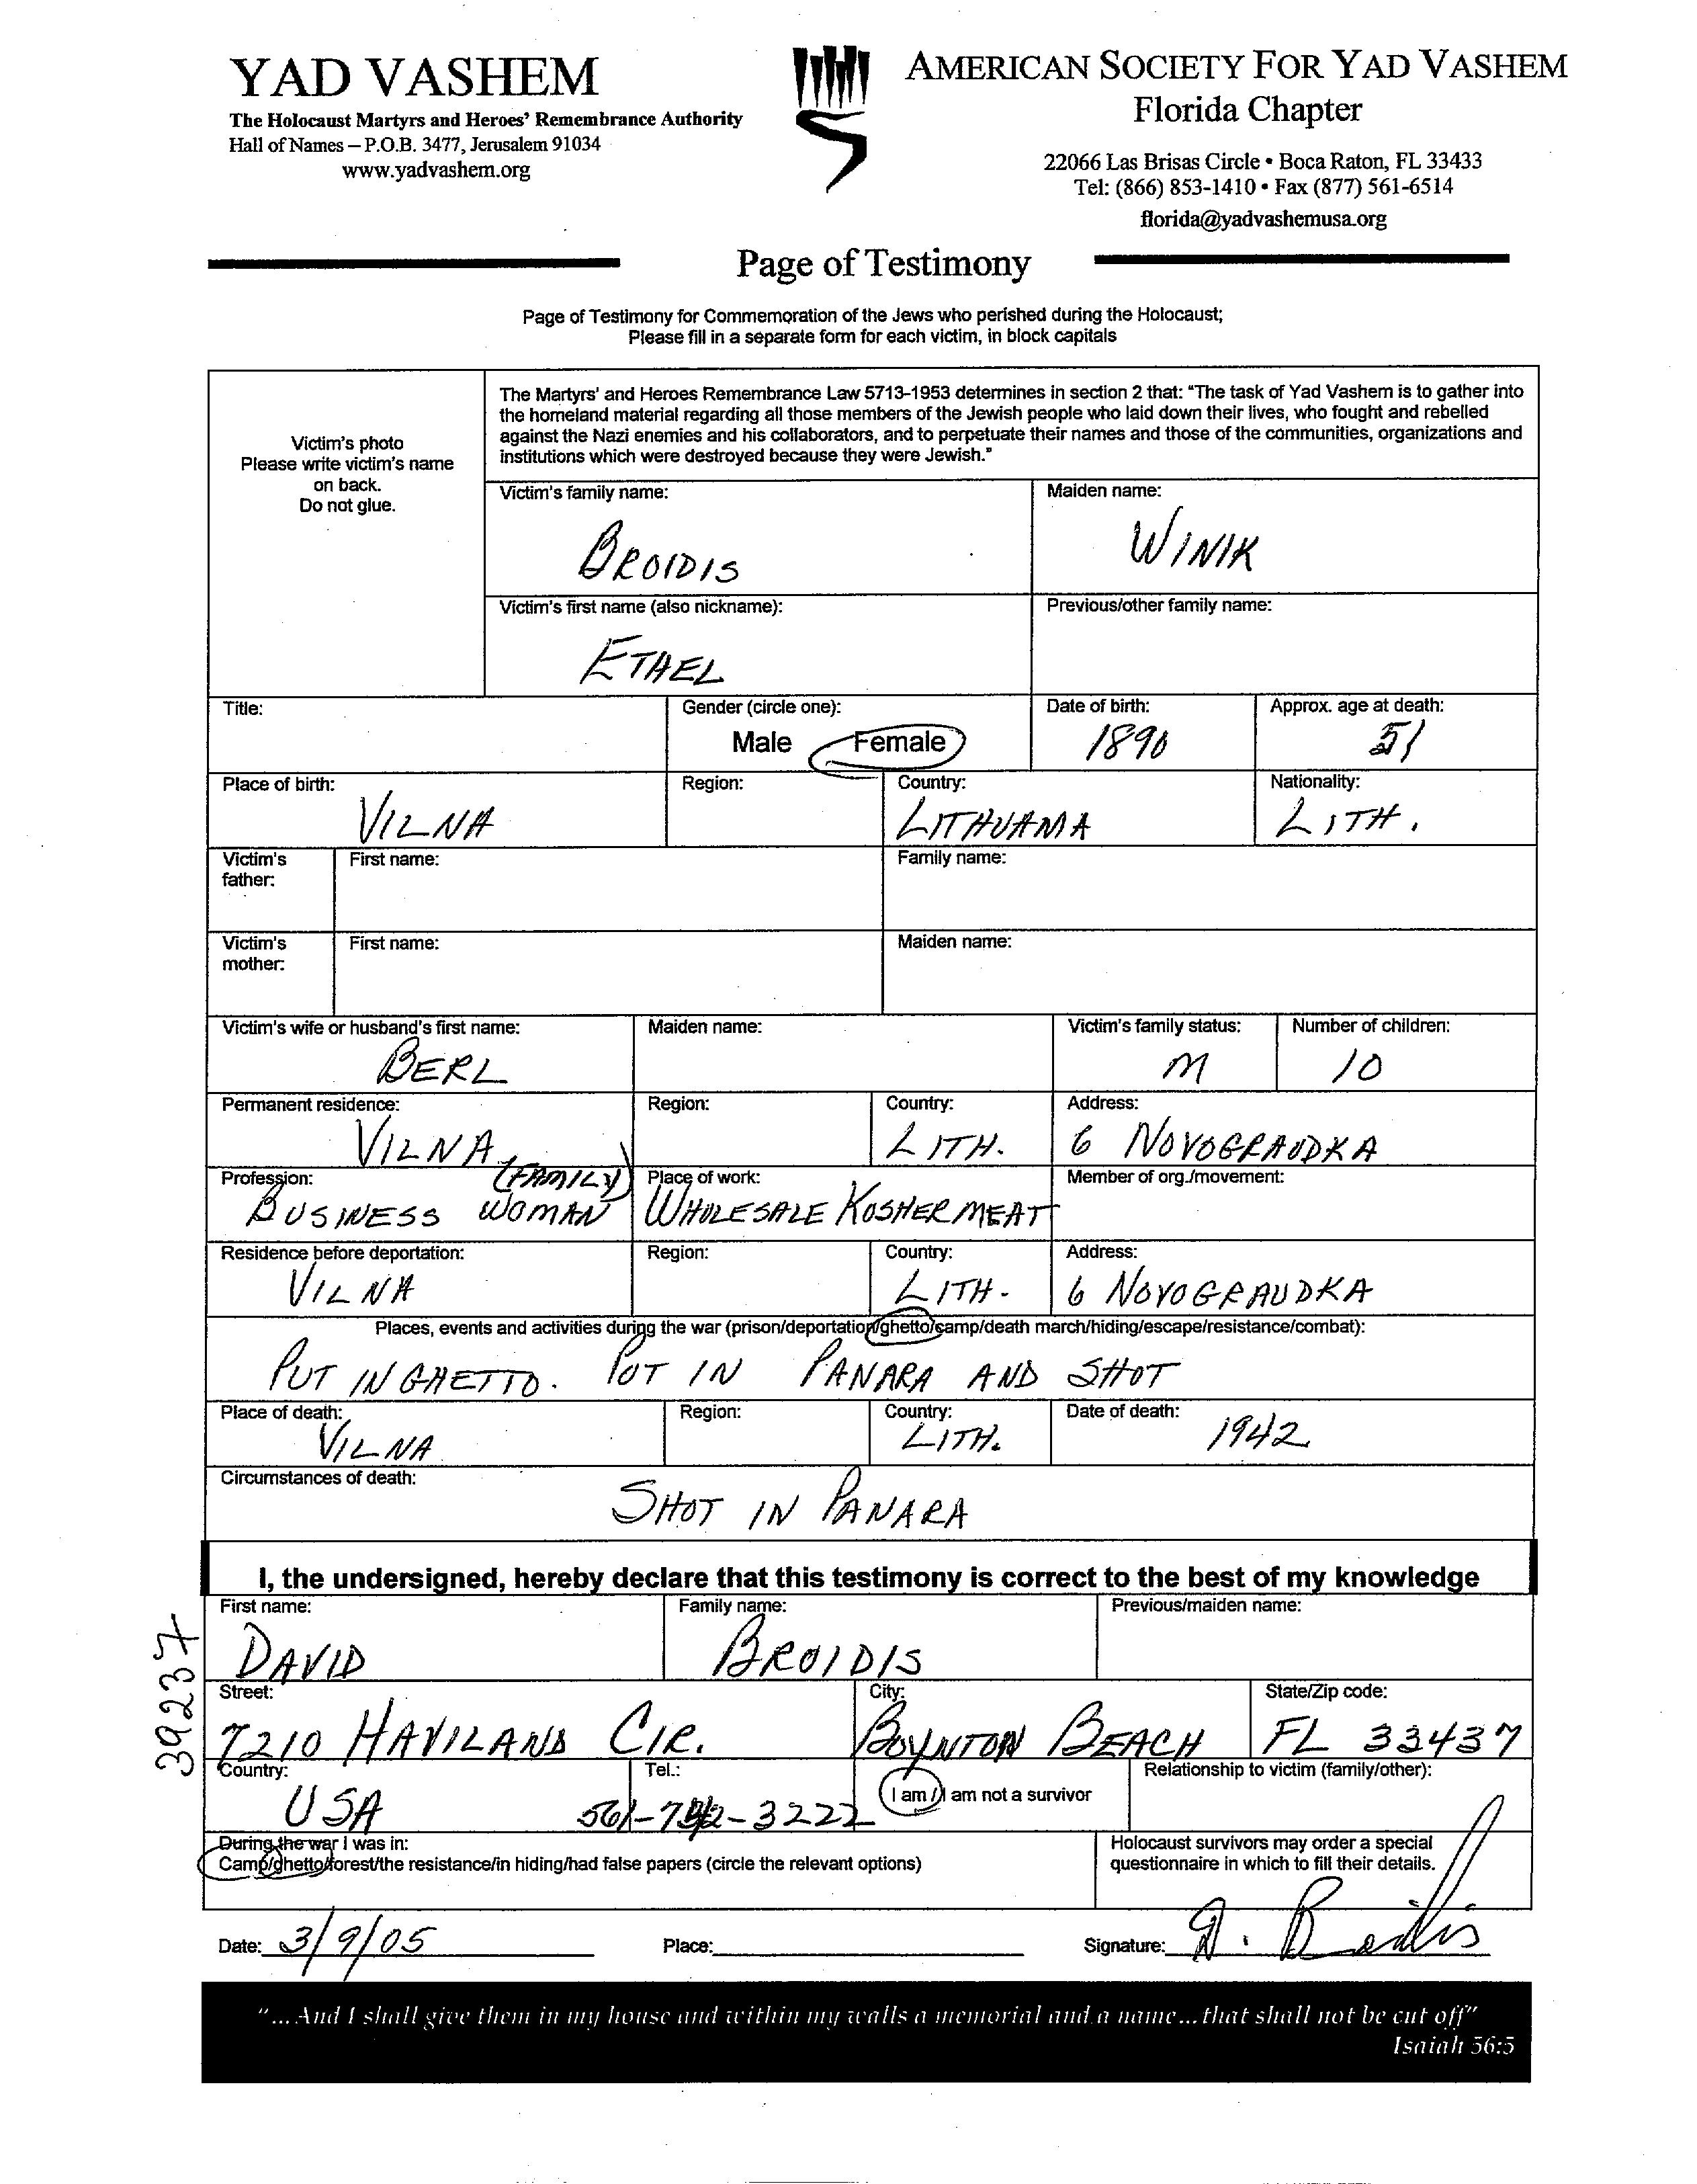 YAD VASHEM
The Holocaust Martyrs and Heroes' Remembrance Authority
Hall of Names – P.O.B. 3477, Jerusalem 91034
www.yadvashem.org
AMERICAN SOCIETY FOR YAD VASHEM
Florida Chapter
22066 Las Brisas Circle • Boca Raton, FL 33433
Tel: (866) 853-1410 • Fax (877) 561-6514
florida@yadvashemusa.org
Page of Testimony
Page of Testimony for Commemoration of the Jews who perished during the Holocaust;
Please fill in a separate form for each victim, in block capitals
Victim's photo
Please write victim's name
on back.
Do not glue.
The Martyrs' and Heroes Remembrance Law 5713-1953 determines in section 2 that: "The task of Yad Vashem is to gather into
the homeland material regarding all those members of the Jewish people who laid down their lives, who fought and rebelled
against the Nazi enemies and his collaborators, and to perpetuate their names and those of the communities, organizations and
institutions which were destroyed because they were Jewish."
Victim's family name: Maiden name:
BROIDIS WINIK
Victim's first name (also nickname): Previous/other family name:
ETHEL
Title: Gender (circle one): Date of birth: Approx. age at death:
Male Female 1890 51
Place of birth: Region: Country: Nationality:
VILNA LITHUANIA LITH.
Victim's father: First name: Family name:
Victim's mother: First name: Maiden name:
Victim's wife or husband's first name: Maiden name: Victim's family status: Number of children:
BERL M 10
Permanent residence: Region: Country: Address:
VILNA LITH. 6 NOVOGRAUDKA
Profession: (FAMILY) Place of work: Member of org./movement:
BUSINESS WOMAN WHOLESALE KOSHER MEAT
Residence before deportation: Region: Country: Address:
VILNA LITH. 6 NOVOGRAUDKA
Places, events and activities during the war (prison/deportation/ghetto/camp/death march/hiding/escape/resistance/combat):
PUT IN GHETTO. PUT IN PANARA AND SHOT
Place of death: Region: Country: Date of death:
VILNA LITH. 1942
Circumstances of death:
SHOT IN PANARA
I, the undersigned, hereby declare that this testimony is correct to the best of my knowledge
First name: Family name: Previous/maiden name:
DAVID BROIDIS
Street: City: State/Zip code:
7210 HAVILAND CIR. BOYNTON BEACH FL 33437
Country: Tel.: I am / I am not a survivor Relationship to victim (family/other):
USA 561-742-3222
During the war I was in:
Camp/ghetto/forest/the resistance/in hiding/had false papers (circle the relevant options)
Holocaust survivors may order a special
questionnaire in which to fill their details.
Date: 3/9/05 Place: Signature: D. Broidis
39237
"...And I shall give them in my house and within my walls a memorial and a name...that shall not be cut off"
Isaiah 56:5